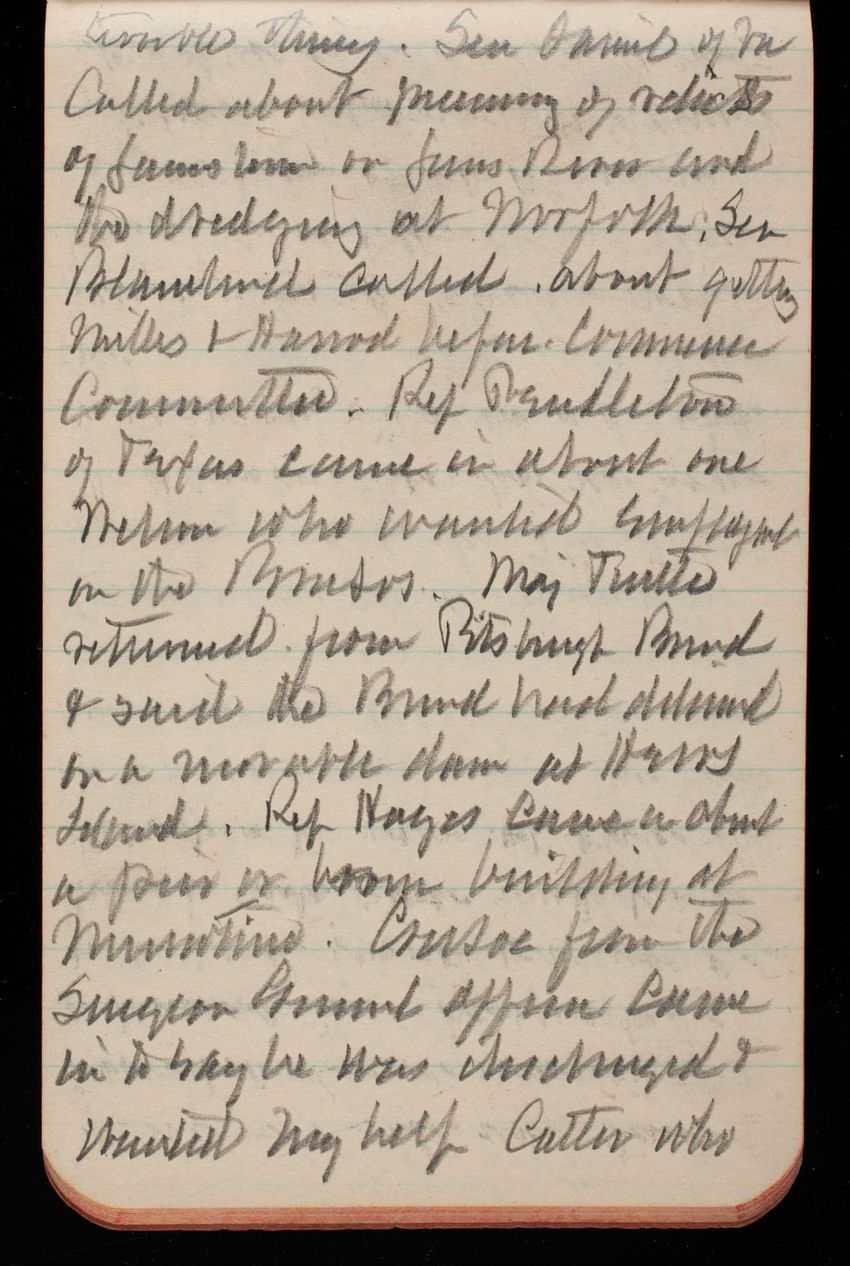 terrible thing. Sen Daniel of Va
Called about pruning of
of Jamestown on James River and
the dredging at Norfolk. Sen
Blanchard called about getting
Mills & Harrod before Commerce
Committee. Rep Pendleton
of Texas came in about one
Nelson who wanted employmt
on the Brazos. Maj Tuttle
returned from Pittsburgh Board
& said the Board had decided
on a movable dam at Herrs
Island. Rep Hayes came in about
a pier or boom building at
Muscatine. Crusoe from the
Surgeon General office came
in to say he was discharged &
wanted my help Cutter who